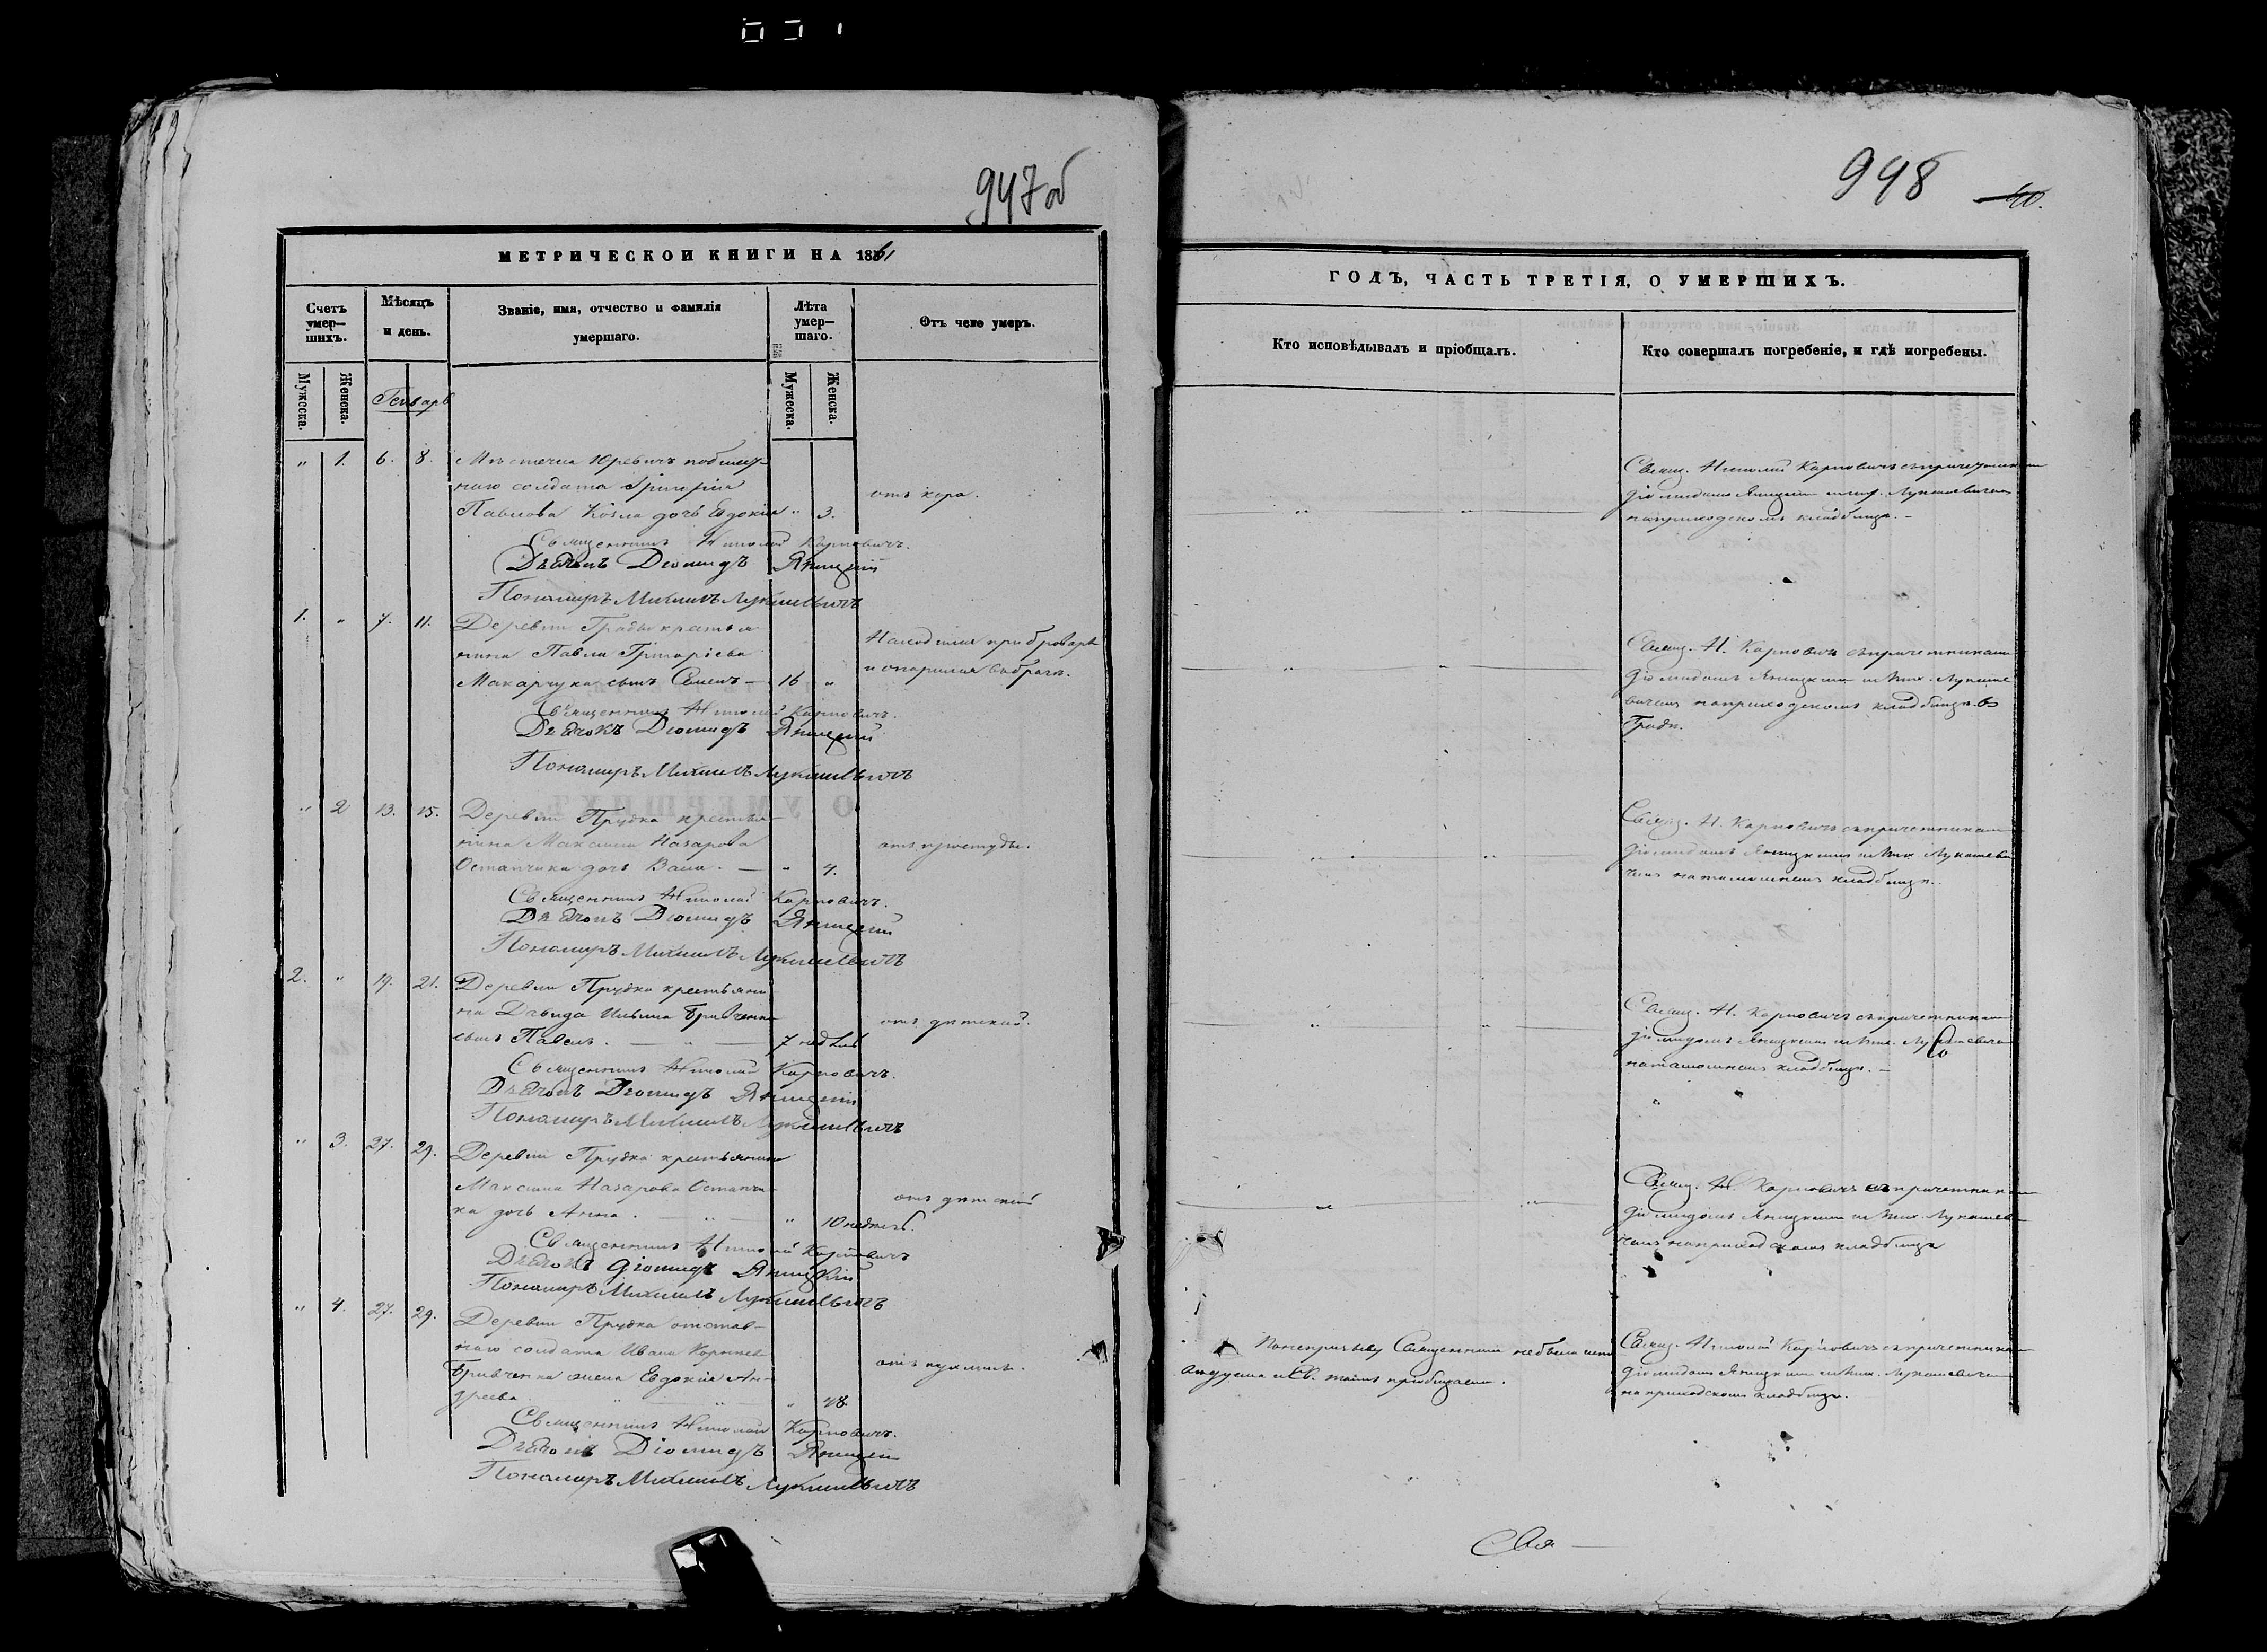 947об
МЕТРИЧЕСКОЙ КНИГИ НА 1861
Счетъ умер—шихъ.
Мѣсяцъ и день.
Званіе, имя, отчество и фамилія умершаго.
Лѣта умер—шаго.
Отъ чего умеръ.
Мужеска.
Женска.
Генварь
Мужеска.
Женска.
" 1. 6. 8. Мѣстечка Юревичъ
наго солдата Григорія
отъ кора.
Павлова Козла дочь Евдокія " 3.
Священникъ Николай Карповичъ.
Дьячокъ Діомидъ Яницкій
Пономаръ Михаилъ Лукашевичъ
1. " 7. 11. Деревни крестья
нина Павла Григоріева
Находился при броварѣ
Макарчука сынъ Семенъ — 16 "
и опарился
Священникъ Николай Карповичъ.
Дьячокъ Діомидъ Яницкій
Пономаръ Михаилъ Лукашевичъ
" 2 13. 15. Деревни Прудка крестья
нина Максима Назарова
отъ простуды.
Остапчика дочь — "
Священникъ Николай Карповичъ.
Дьячокъ Діомидъ Яницкій
Пономаръ Михаилъ Лукашевичъ
2. " 19. 21. Деревни Прудка крестьяни
на Давида Ильина
отъ дѣтской.
сынъ Павелъ. — " — 7 недѣль
Священникъ Николай Карповичъ.
Дьячокъ Діомидъ Яницкій
Пономаръ Михаилъ Лукашевичъ
" 3. 27. 29. Деревни Прудка крестьянина
Максима Назарова Остапчи
отъ дѣтской
ка дочь Анна. — " — " 10 недѣль.
Священникъ Николай Карповичъ
Дьячокъ Діомидъ Яницкій
Пономаръ Михаилъ Лукашевичъ
" 4. 27. 29. Деревни Прудка отстав—
наго солдата Ивана
жена Евдокія Ан
дреева " — " — "
Священникъ Николай Карповичъ.
Дьячокъ Діомидъ Яницкій
Пономаръ Михаилъ Лукашевичъ
948
40.
ГОДЪ, ЧАСТЬ ТРЕТІЯ, О УМЕРШИХЪ.
Кто исповѣдывалъ и пріобщалъ.
Кто совершалъ погребеніе, и гдѣ погребены.
Свящ. Николай Карповичъ съ причетниками
Діомидомъ Яницкимъ и Мих. Лукашевичемъ
на приходскомъ кладбищѣ. —
Свящ. Н. Карповичъ съ причетниками
Діомидомъ Яницкимъ и Мих. Лукаше
вичемъ на приходскомъ кладбищѣ въ
Свящ. Н. Карповичъ съ причетниками
Діомидомъ Яницкимъ и Мих. Лукашеви
чемъ на тамошнемъ кладбищѣ.
Свящ. Н. Карповичъ съ причетниками
Діомидомъ Яницкимъ и Мих. Лукашевичемъ
на тамошнемъ кладбищѣ. —
Свящ. Н. Карповичъ съ причетниками
Діомидомъ Яницкимъ и Мих. Лукашеви
чемъ на приходскомъ кладбищѣ
По непризыву Священника не была испо
вѣдуема и Св. таинъ пріобщаема.
Свящ. Николай Карповичъ съ причетниками
Діомидомъ Яницкимъ и Мих. Лукашевичемъ
на приходскомъ кладбищѣ.
Свя—